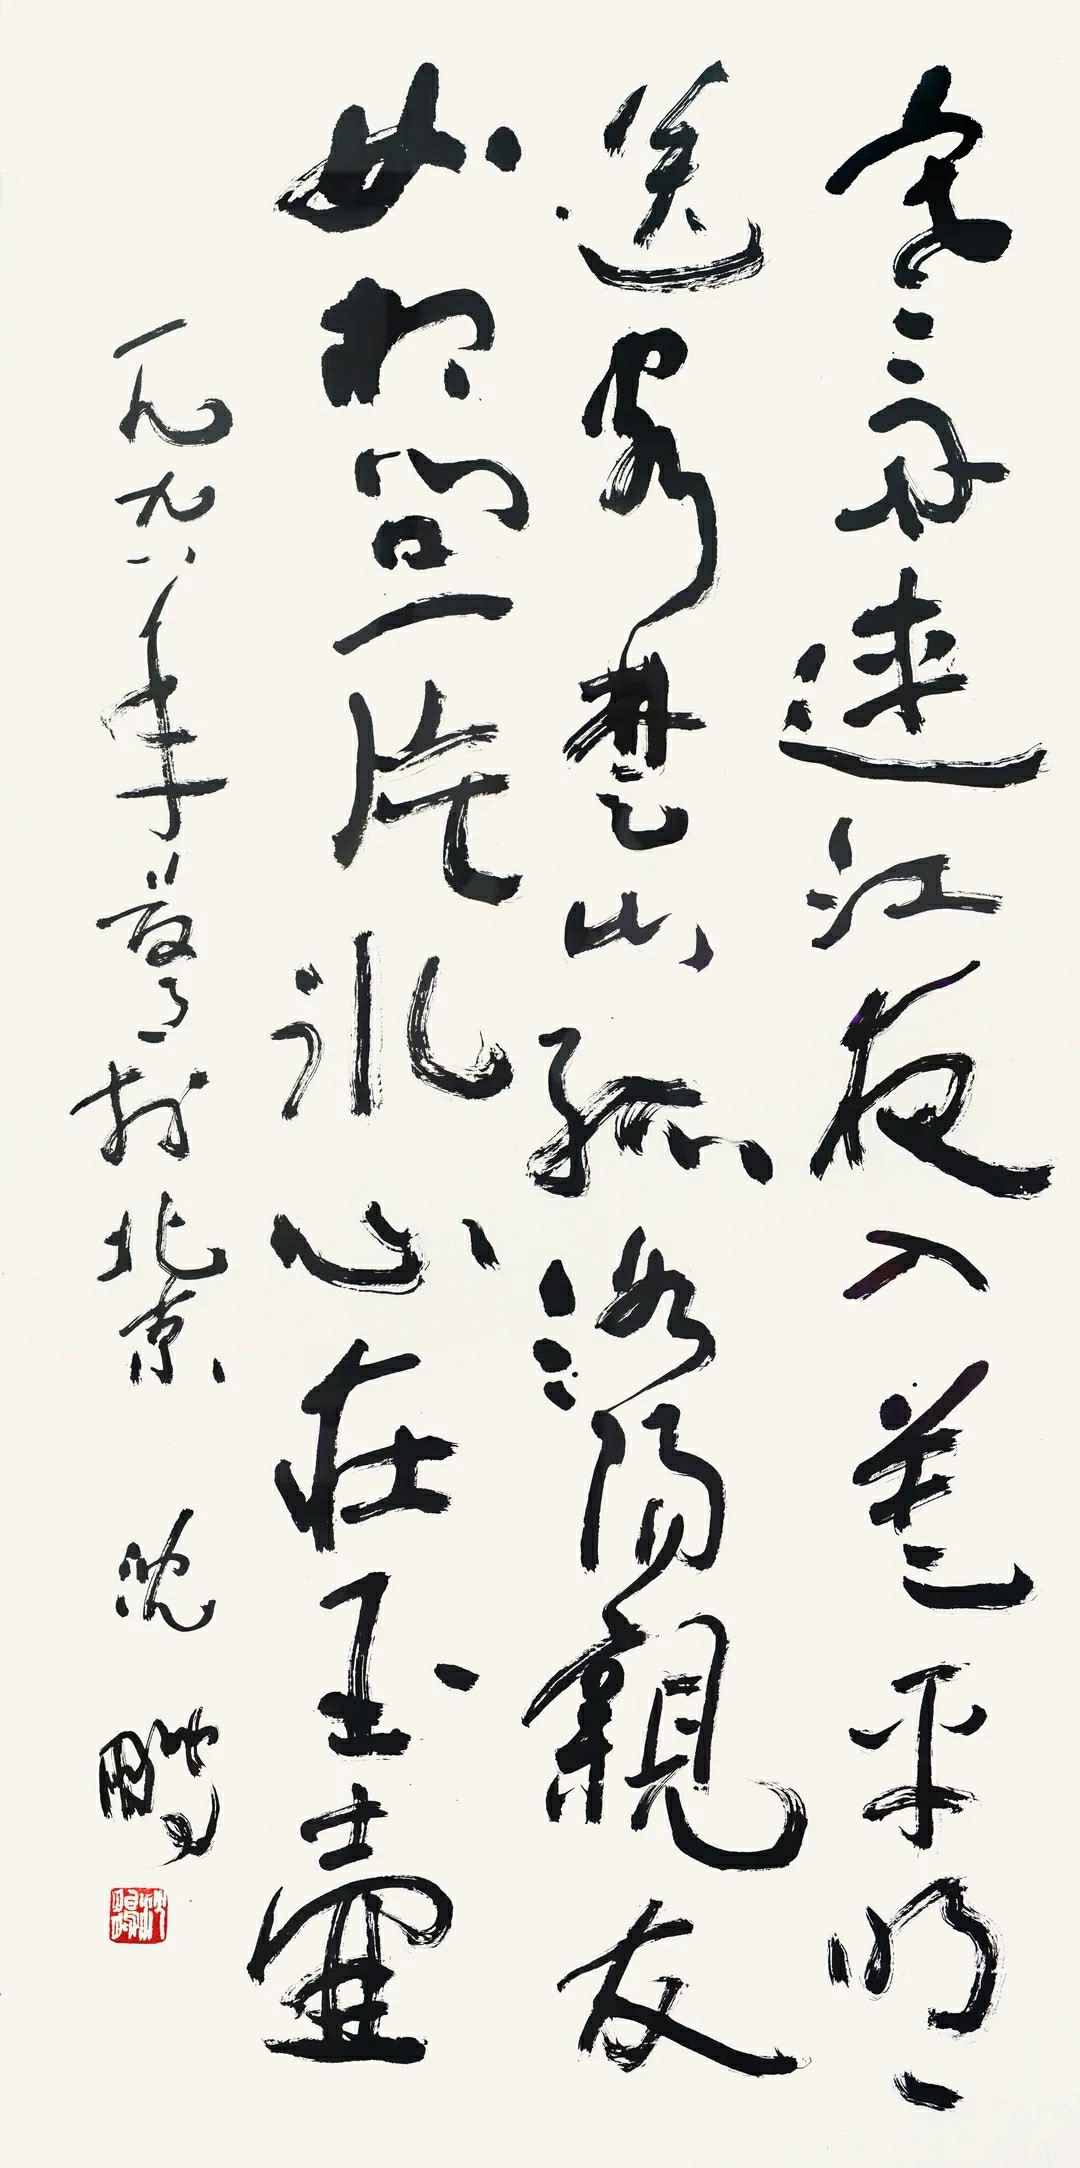 寒雨連江夜入吴平明
送客楚山孤洛陽親友
如相問一片冰心在玉壺
一九九八年於北京 沈鵬